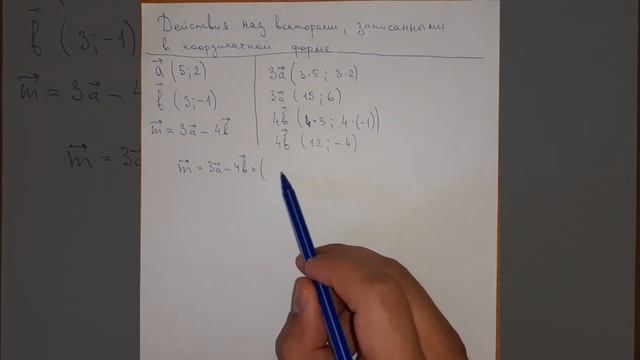 Действия над векторами, записанными
в координатной форме.
a⃗ (5; 2)
b⃗ (3; -1)
m⃗ = 3a⃗ - 4b⃗
3a⃗ (3·5; 3·2)
3a⃗ (15; 6)
4b⃗ (4·3; 4·(-1))
4b⃗ (12; -4)
m⃗ = 3a⃗ - 4b⃗ = (